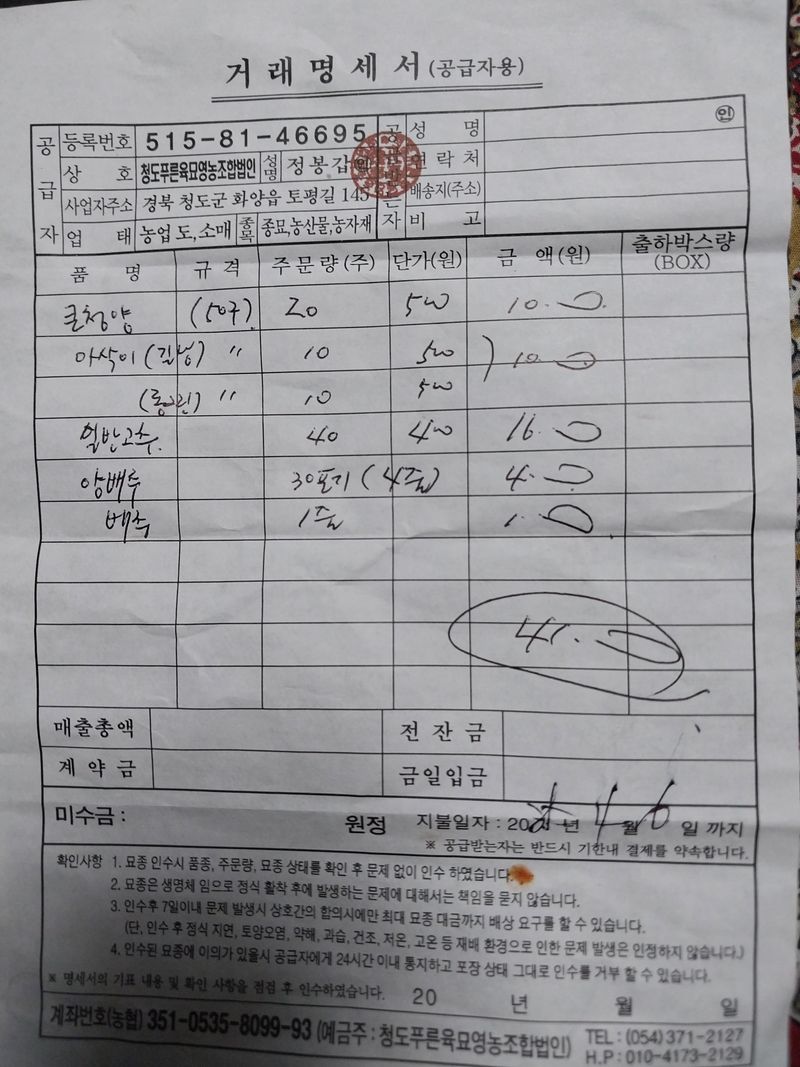 거래명세서(공급자용)
공급자 등록번호 515-81-46695 성 명 인
상 호 청도푸른육묘영농조합법인 성명 정봉갑 연락처
사업자주소 경북 청도군 화양읍 토평길 145 배송지(주소)
업 태 농업 도,소매 종목 종묘,농산물,농자재 비 고
품 명 규 격 주문량(주) 단가(원) 금 액(원) 출하박스량(BOX)
큰청양 (50구) 20 500 10.
아삭이 (길상) 〃 10 500 10.
〃 10 500
일반고추 40 400 16.
양배추 30포기 (4줄) 4.
배추 1줄 1.
41.
매출총액 전 잔 금
계 약 금 금일입금
미수금 : 원정 지불일자 : 20 년 4 월 6 일 까지
※ 공급받는자는 반드시 기한내 결제를 약속합니다.
확인사항 1. 묘종 인수시 품종, 주문량, 묘종 상태를 확인 후 문제 없이 인수 하였습니다.
2. 묘종은 생명체 임으로 정식 활착 후에 발생하는 문제에 대해서는 책임을 묻지 않습니다.
3. 인수후 7일이내 문제 발생시 상호간의 합의시에만 최대 묘종 대금까지 배상 요구를 할 수 있습니다.
(단, 인수 후 정식 지연, 토양오염, 약해, 과습, 건조, 저온, 고온 등 재배 환경으로 인한 문제 발생은 인정하지 않습니다.)
4. 인수된 묘종에 이의가 있을시 공급자에게 24시간 이내 통지하고 포장 상태 그대로 인수를 거부 할 수 있습니다.
※ 명세서의 기표 내용 및 확인 사항을 점검 후 인수하였습니다. 20 년 월 일
계좌번호(농협) 351-0535-8099-93 (예금주 : 청도푸른육묘영농조합법인) TEL : (054) 371-2127
H.P : 010-4173-2129